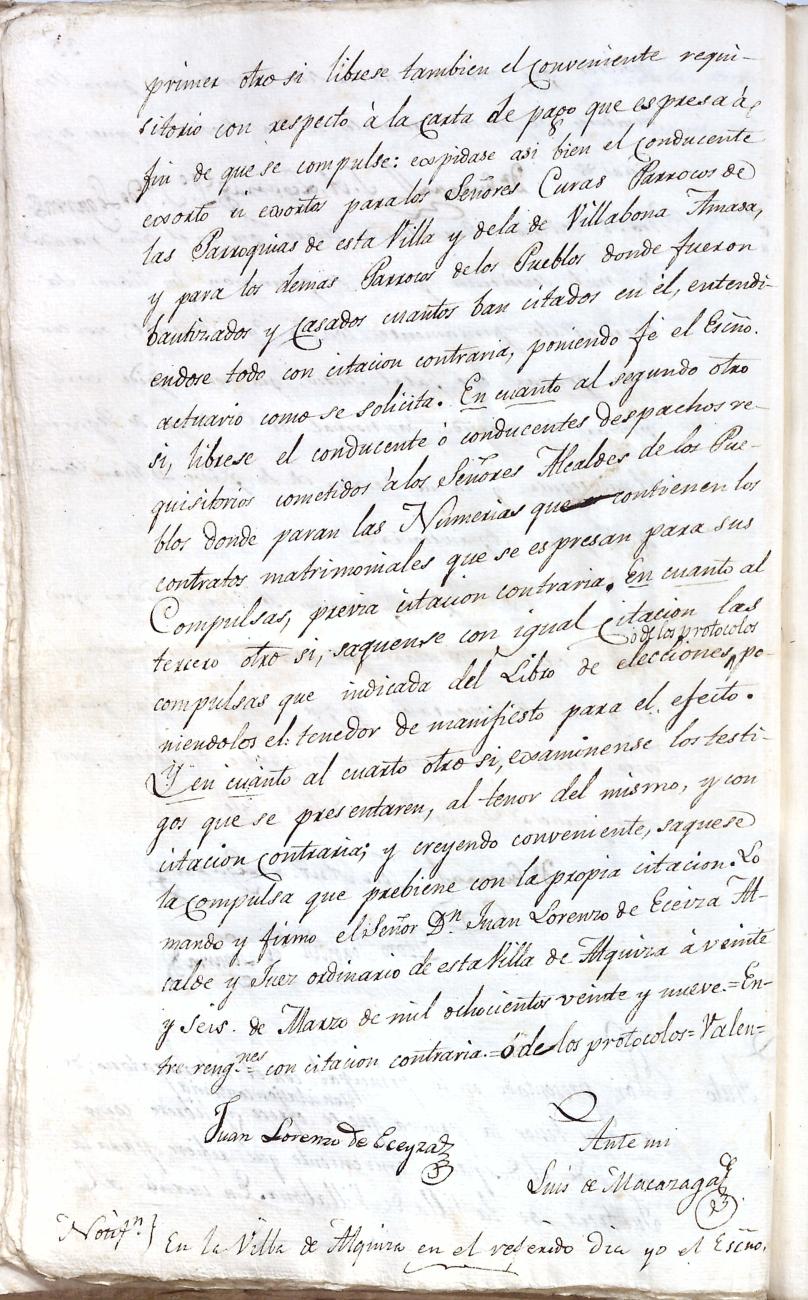 primer otro si librese tambien el conveniente requi-
sitorio con respecto à la Carta de pago que espresa á
fin de que se compulse: expidase asi bien el conducente
exorto ú exortos para los Señores Curas Parrocos de
las Parroquias de esta Villa y de la de Villabona Amasa,
y para los demas Parrocos de los Pueblos donde fueron
bautizados y Casados cuantos ban citados en él, entendi-
endose todo con citacion contraria, poniendo fé el Escño.
actuario como se solicita. En cuanto al segundo otro
si, librese el conducente ó conducentes despachos re-
quisitorios cometidos à los Señores Alcaldes de los Pue-
blos donde paran las Numerias que contienen los
contratos matrimoniales que se espresan para sus
Compulsas, previa citacion contraria. En cuanto al
tercero otro si, saquense con igual Citacion las
ó de los protocolos
compulsas que indicada del Libro de elecciones, po-
niendolos el tenedor de manifiesto para el efecto.
Y en cuanto al cuarto otro si, examinense los testi-
gos que se presentaren, al tenor del mismo, y con
citacion Contraria; y creyendo conveniente, saquese
la compulsa que prebiene con la propia citacion. Lo
mando y firmo el Señor Dn. Juan Lorenzo de Eceiza Al-
calde y Juez ordinario de esta Villa de Alquiza à veinte
y seis de Marzo de mil ochocientos veinte y nueve.=En-
tre rengnes.= con citacion contraria.=ó de los protocolos=Valen=
Juan Lorenzo de Eceyza
Ante mi
Luis de Macazaga
Notifn. } En la Villa de Alquiza en el referido dia yo el Escño.